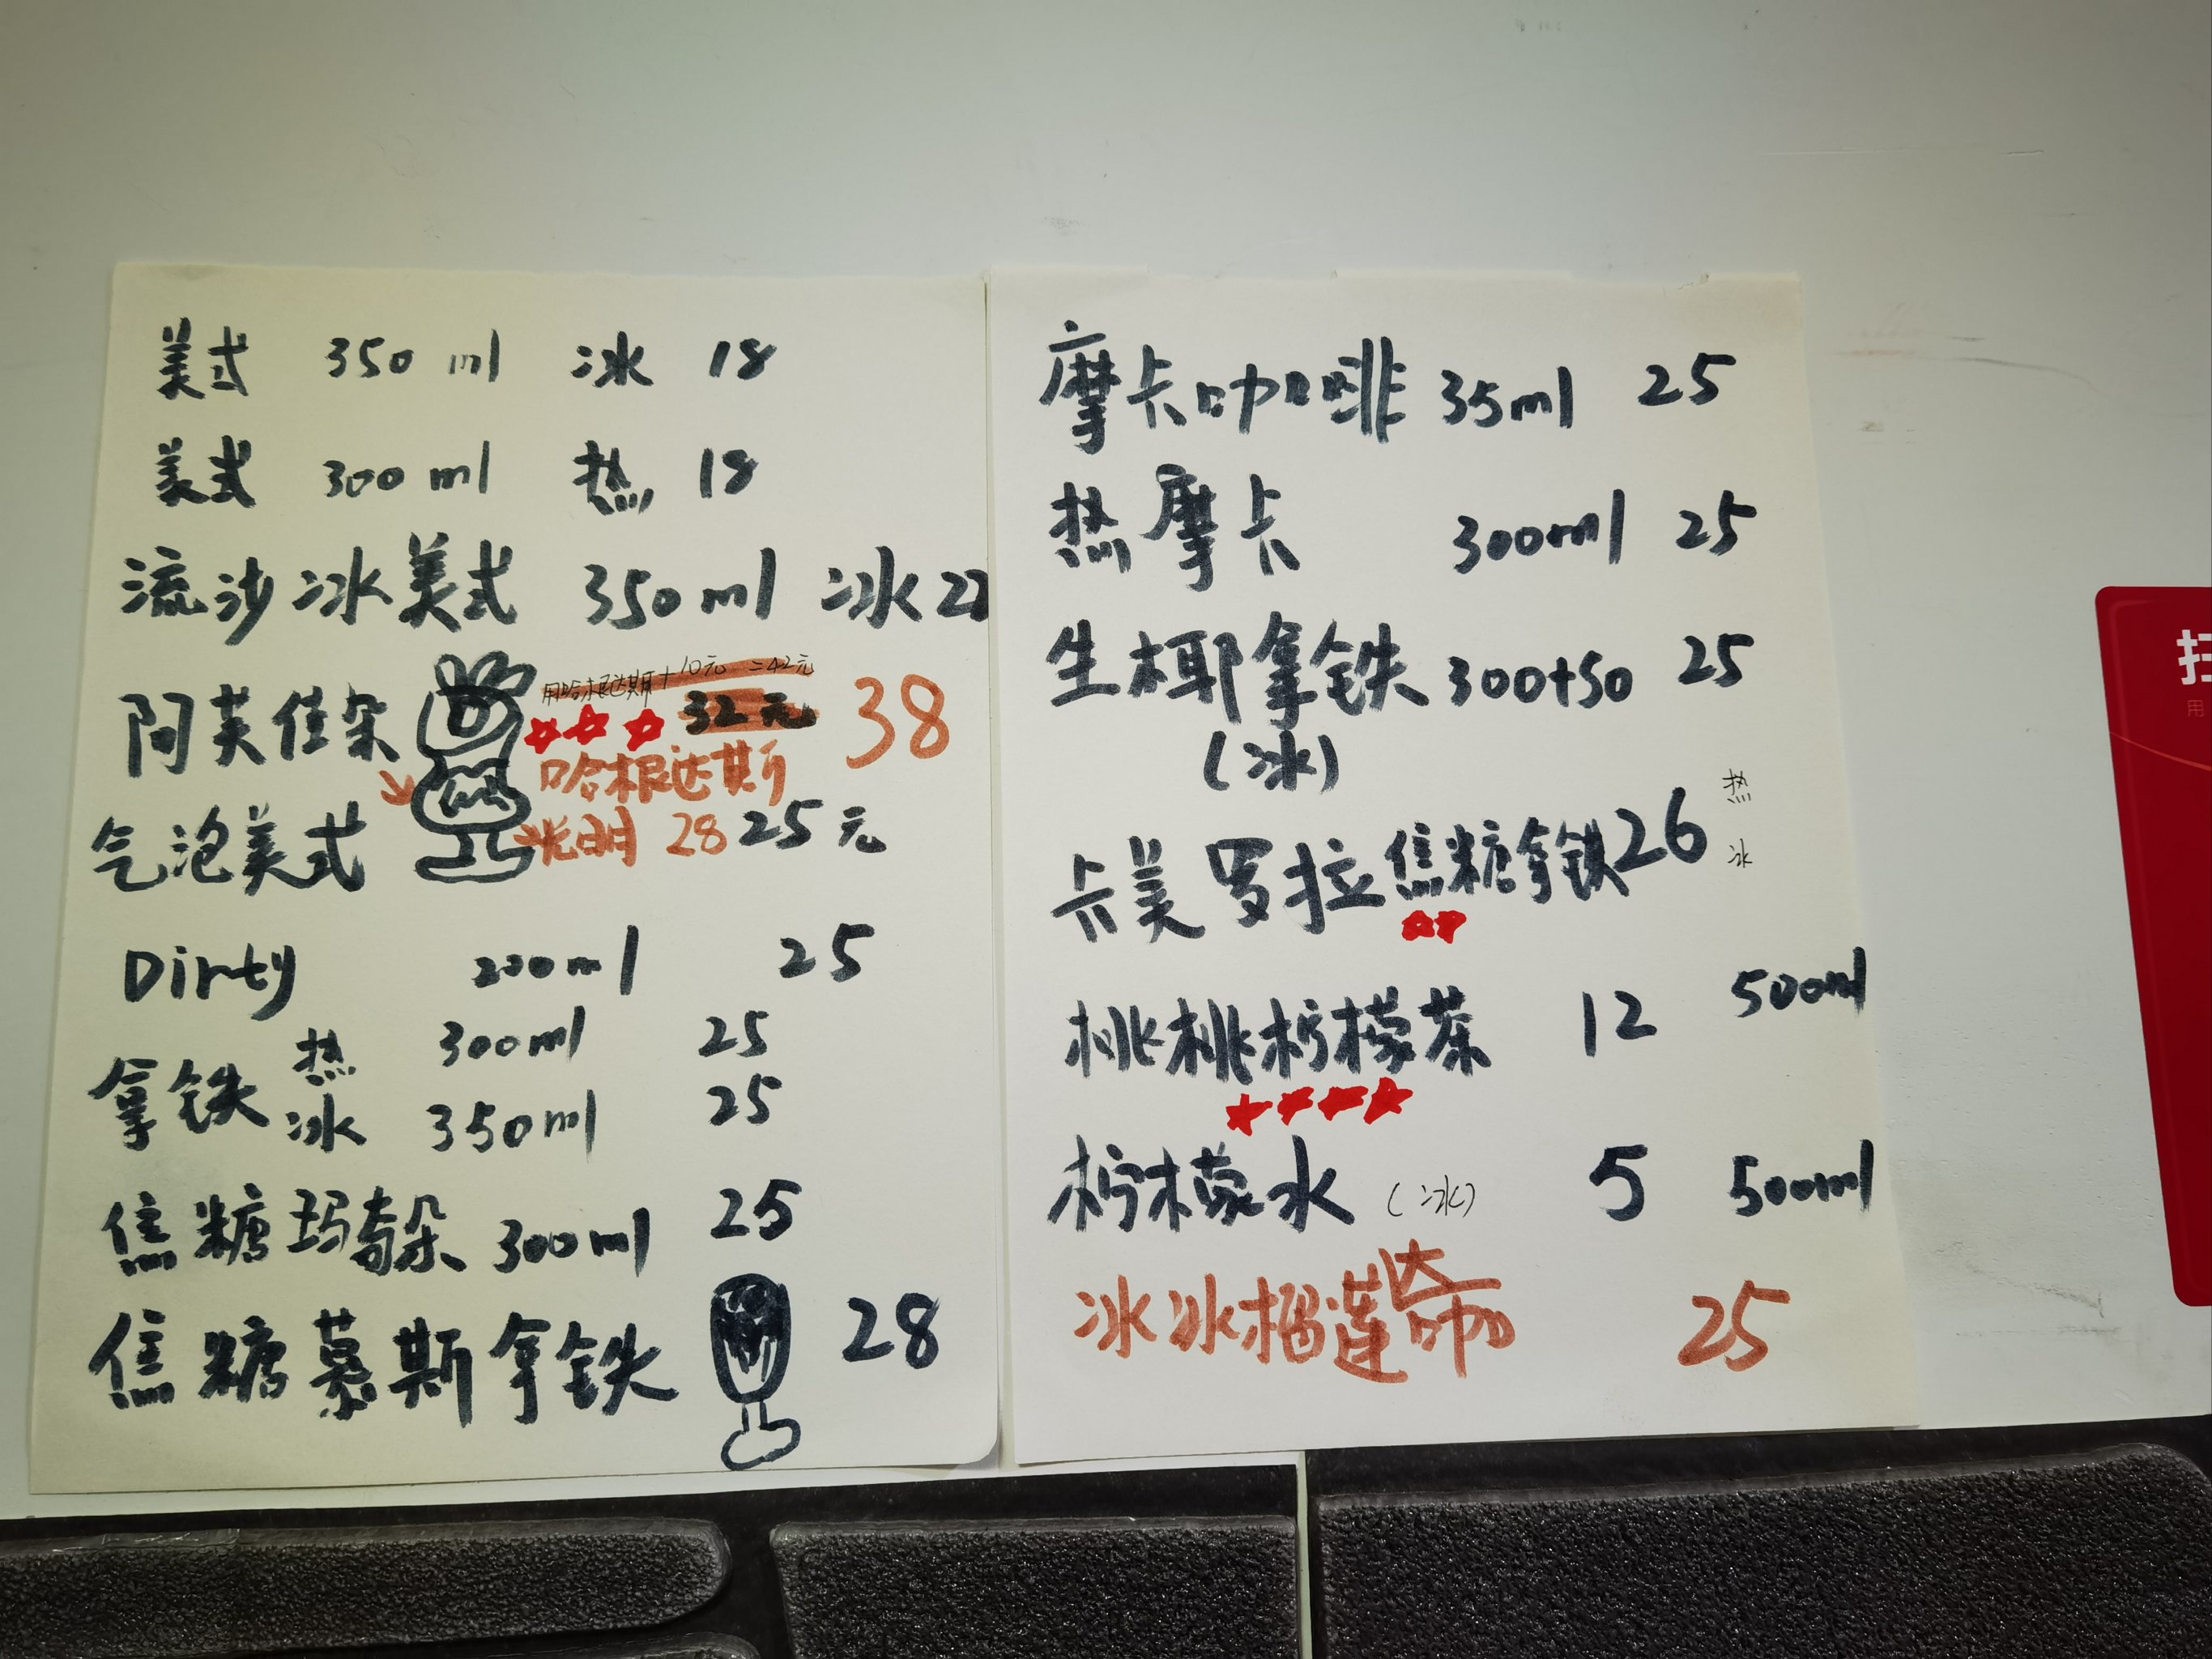 美式 350ml 冰 18
美式 300ml 热 18
流沙冰美式 350ml 冰 22
用哈根达斯+10元=42元
阿芙佳朵 32元 38
哈根达斯
光明 28
气泡美式 25元
Dirty 200ml 25
拿铁 热 300ml 25
冰 350ml 25
焦糖玛奇朵 300ml 25
焦糖慕斯拿铁 28
摩卡咖啡 35ml 25
热摩卡 300ml 25
生椰拿铁 300+50 25
(冰)
卡美罗拉焦糖拿铁 26 热
冰
桃桃柠檬茶 12 500ml
柠檬水 (冰) 5 500ml
冰冰榴莲大咖 25
扫
用